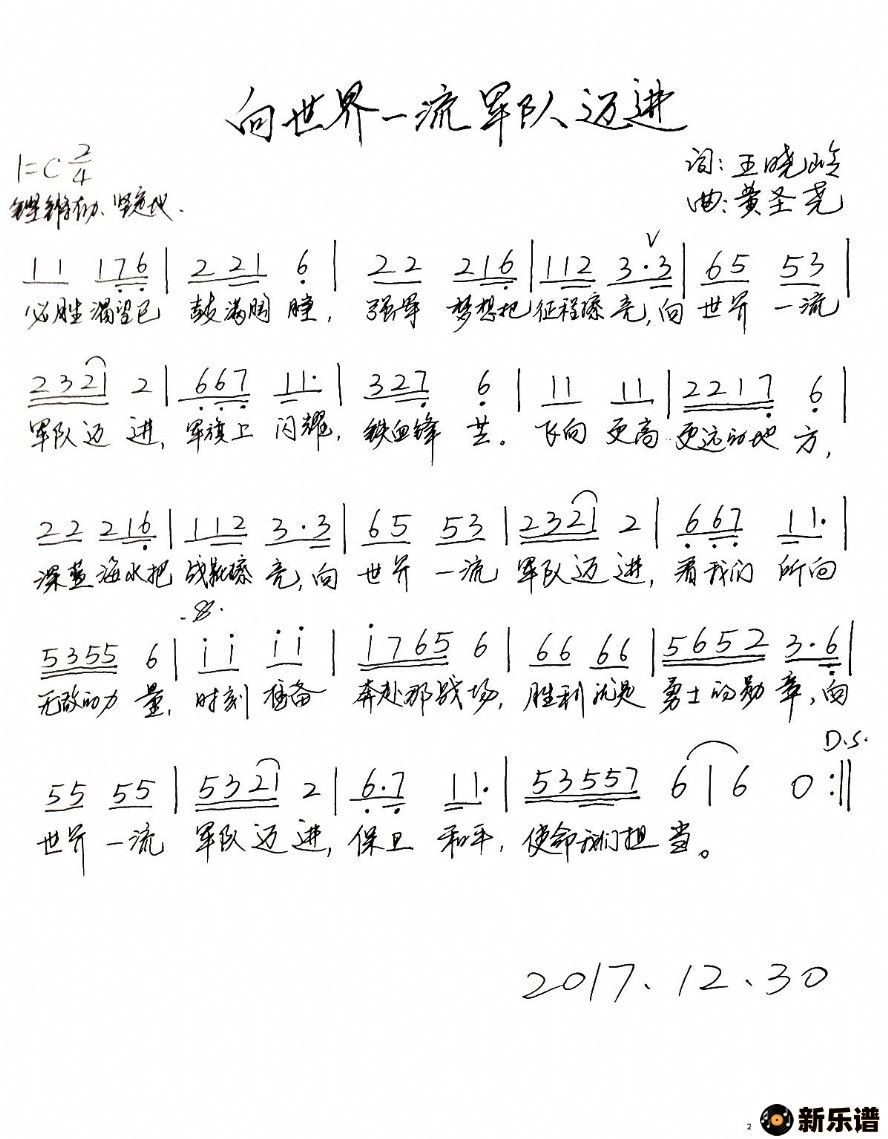 向世界一流军队迈进
1=C 2/4
词:王晓岭
铿锵有力、坚定地.
曲:黄圣尧
V
11 176 | 2 21 6 | 22 216 | 112 3·3 | 65 53 |
必胜渴望已 鼓满胸膛, 强军 梦想把征程擦亮,向 世界 一流
2321 2 | 667 11· | 327 6 | 11 11 | 2217 6 |
军队迈 进, 军旗上 闪耀, 铁血锋 芒。 飞向 更高 更远的地 方,
22 216 | 112 3·3 | 65 53 | 2321 2 | 667 11· |
深蓝 海水把 战靴擦 亮,向 世界 一流 军队迈 进, 看我们 所向
.S.
5355 6 | ii ii | i765 6 | 66 66 | 5652 3·6 |
无敌的力 量, 时刻 准备 奔赴那战 场, 胜利就是 勇士的勋 章,向
D.S.
55 55 | 5321 2 | 6·7 11· | 53557 6 | 6 0 :||
世界 一流 军队迈 进, 保卫 和平, 使命我们担 当。
2017.12.30
2 新乐谱